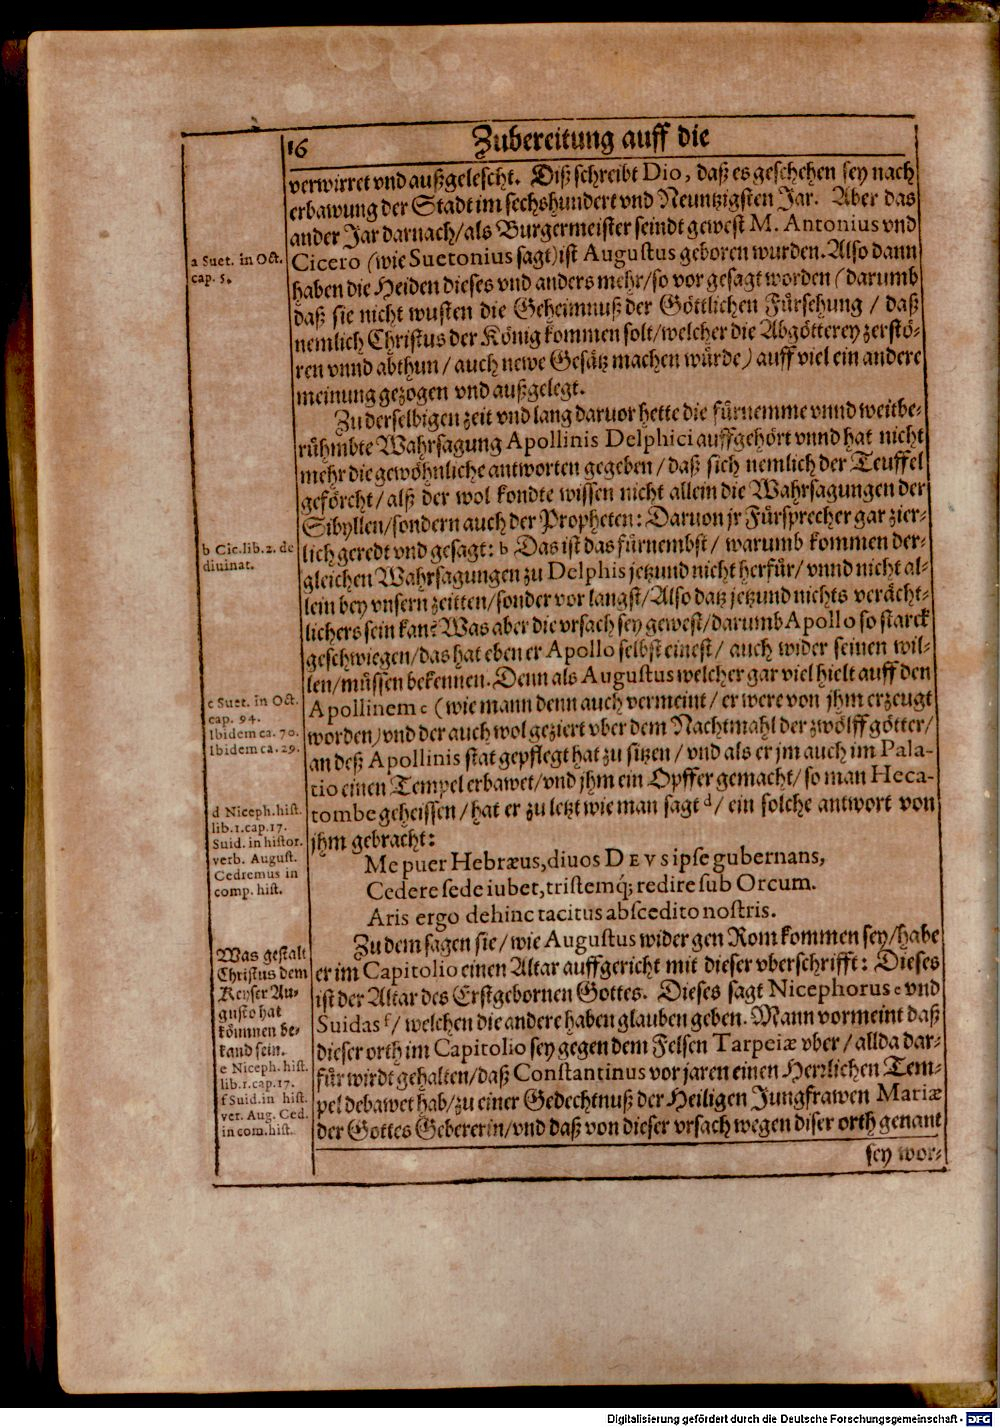 16
Zubereitung auff die
verwirret vnd außgelescht. Diß schreibt Dio, daß es geschehen sey nach
erbawung der Stadt im sechshundert vnd Neuntzigsten Jar. Aber das
ander Jar darnach/als Burgermeister seindt gewest M. Antonius vnd
Cicero (wie Suetonius sagt) ist Augustus geboren wurden. Also dann
haben die Heiden dieses vnd anders mehr/so vor gesagt worden (darumb
daß sie nicht wusten die Geheimnuß der Göttlichen Fürsehung / daß
nemlich Christus der König kommen solt/welcher die Abgötterey zerstö-
ren vnnd abthun / auch newe Gesätz machen würde) auff viel ein andere
meinung gezogen vnd außgelegt.
Zu derselbigen zeit vnd lang daruor hette die fürnemme vnnd weitbe-
rühmbte Wahrsagung Apollinis Delphici auffgehört vnnd hat nicht
mehr die gewöhnliche antworten gegeben / daß sich nemlich der Teuffel
geförcht / alß der wol kondte wissen nicht allein die Wahrsagungen der
Sibyllen/sondern auch der Propheten: Daruon jr Fürsprecher gar zier-
lich geredt vnd gesagt: b Das ist das fürnembst / warumb kommen der-
gleichen Wahrsagungen zu Delphis jetzund nicht herfür/ vnnd nicht al-
lein bey vnsern zeitten/sonder vor langst/Also datz jetzund nichts verächt-
lichers sein kan? Was aber die vrsach sey gewest/darumb Apollo so starck
geschwiegen/das hat eben er Apollo selbst einest / auch wider seinen wil-
len/müssen bekennen. Denn als Augustus welcher gar viel hielt auff den
Apollinem c (wie mann denn auch vermeint / er were von jhm erzeugt
worden) vnd der auch wol geziert vber dem Nachtmahl der zwölff götter/
an deß Apollinis stat gepflegt hat zu sitzen / vnd als er jm auch im Pala-
tio einen Tempel erbawet/vnd jhm ein Opffer gemacht/ so man Heca-
tombe geheissen / hat er zu letzt wie man sagt d / ein solche antwort von
jhm gebracht:
Me puer Hebræus, diuos DEVS ipse gubernans,
Cedere sede iubet, tristemq́; redire sub Orcum.
Aris ergo dehinc tacitus abscedito nostris.
Zu dem sagen sie / wie Augustus wider gen Rom kommen sey/habe
er im Capitolio einen Altar auffgericht mit dieser vberschrifft: Dieses
ist der Altar des Erstgebornen Gottes. Dieses sagt Nicephorus e vnd
Suidas f / welchen die andere haben glauben geben. Mann vormeint daß
dieser orth im Capitolio sey gegen dem Felsen Tarpeiæ vber / allda dar-
für wirdt gehalten/daß Constantinus vor jaren einen Herrlichen Tem-
pel debawet hab/zu einer Gedechtnuß der Heiligen Jungfrawen Mariæ
der Gottes Gebererin/vnd daß von dieser vrsach wegen diser orth genant
sey wor-
a Suet. in Oct.
cap. 5.
b Cic. lib. 2. de
diuinat.
c Suet. in Oct.
cap. 94.
Ibidem ca. 70.
Ibidem ca. 29.
d Niceph. hist.
lib. 1. cap. 17.
Suid. in histor.
verb. August.
Cedremus in
comp. hist.
Was gestalt
Christus dem
Keyser Au-
gusto hat
können be-
kand sein.
e Niceph. hist.
lib. 1. cap. 17.
f Suid. in hist.
ver. Aug. Ced.
in com. hist.
Digitalisierung gefördert durch die Deutsche Forschungsgemeinschaft - DFG